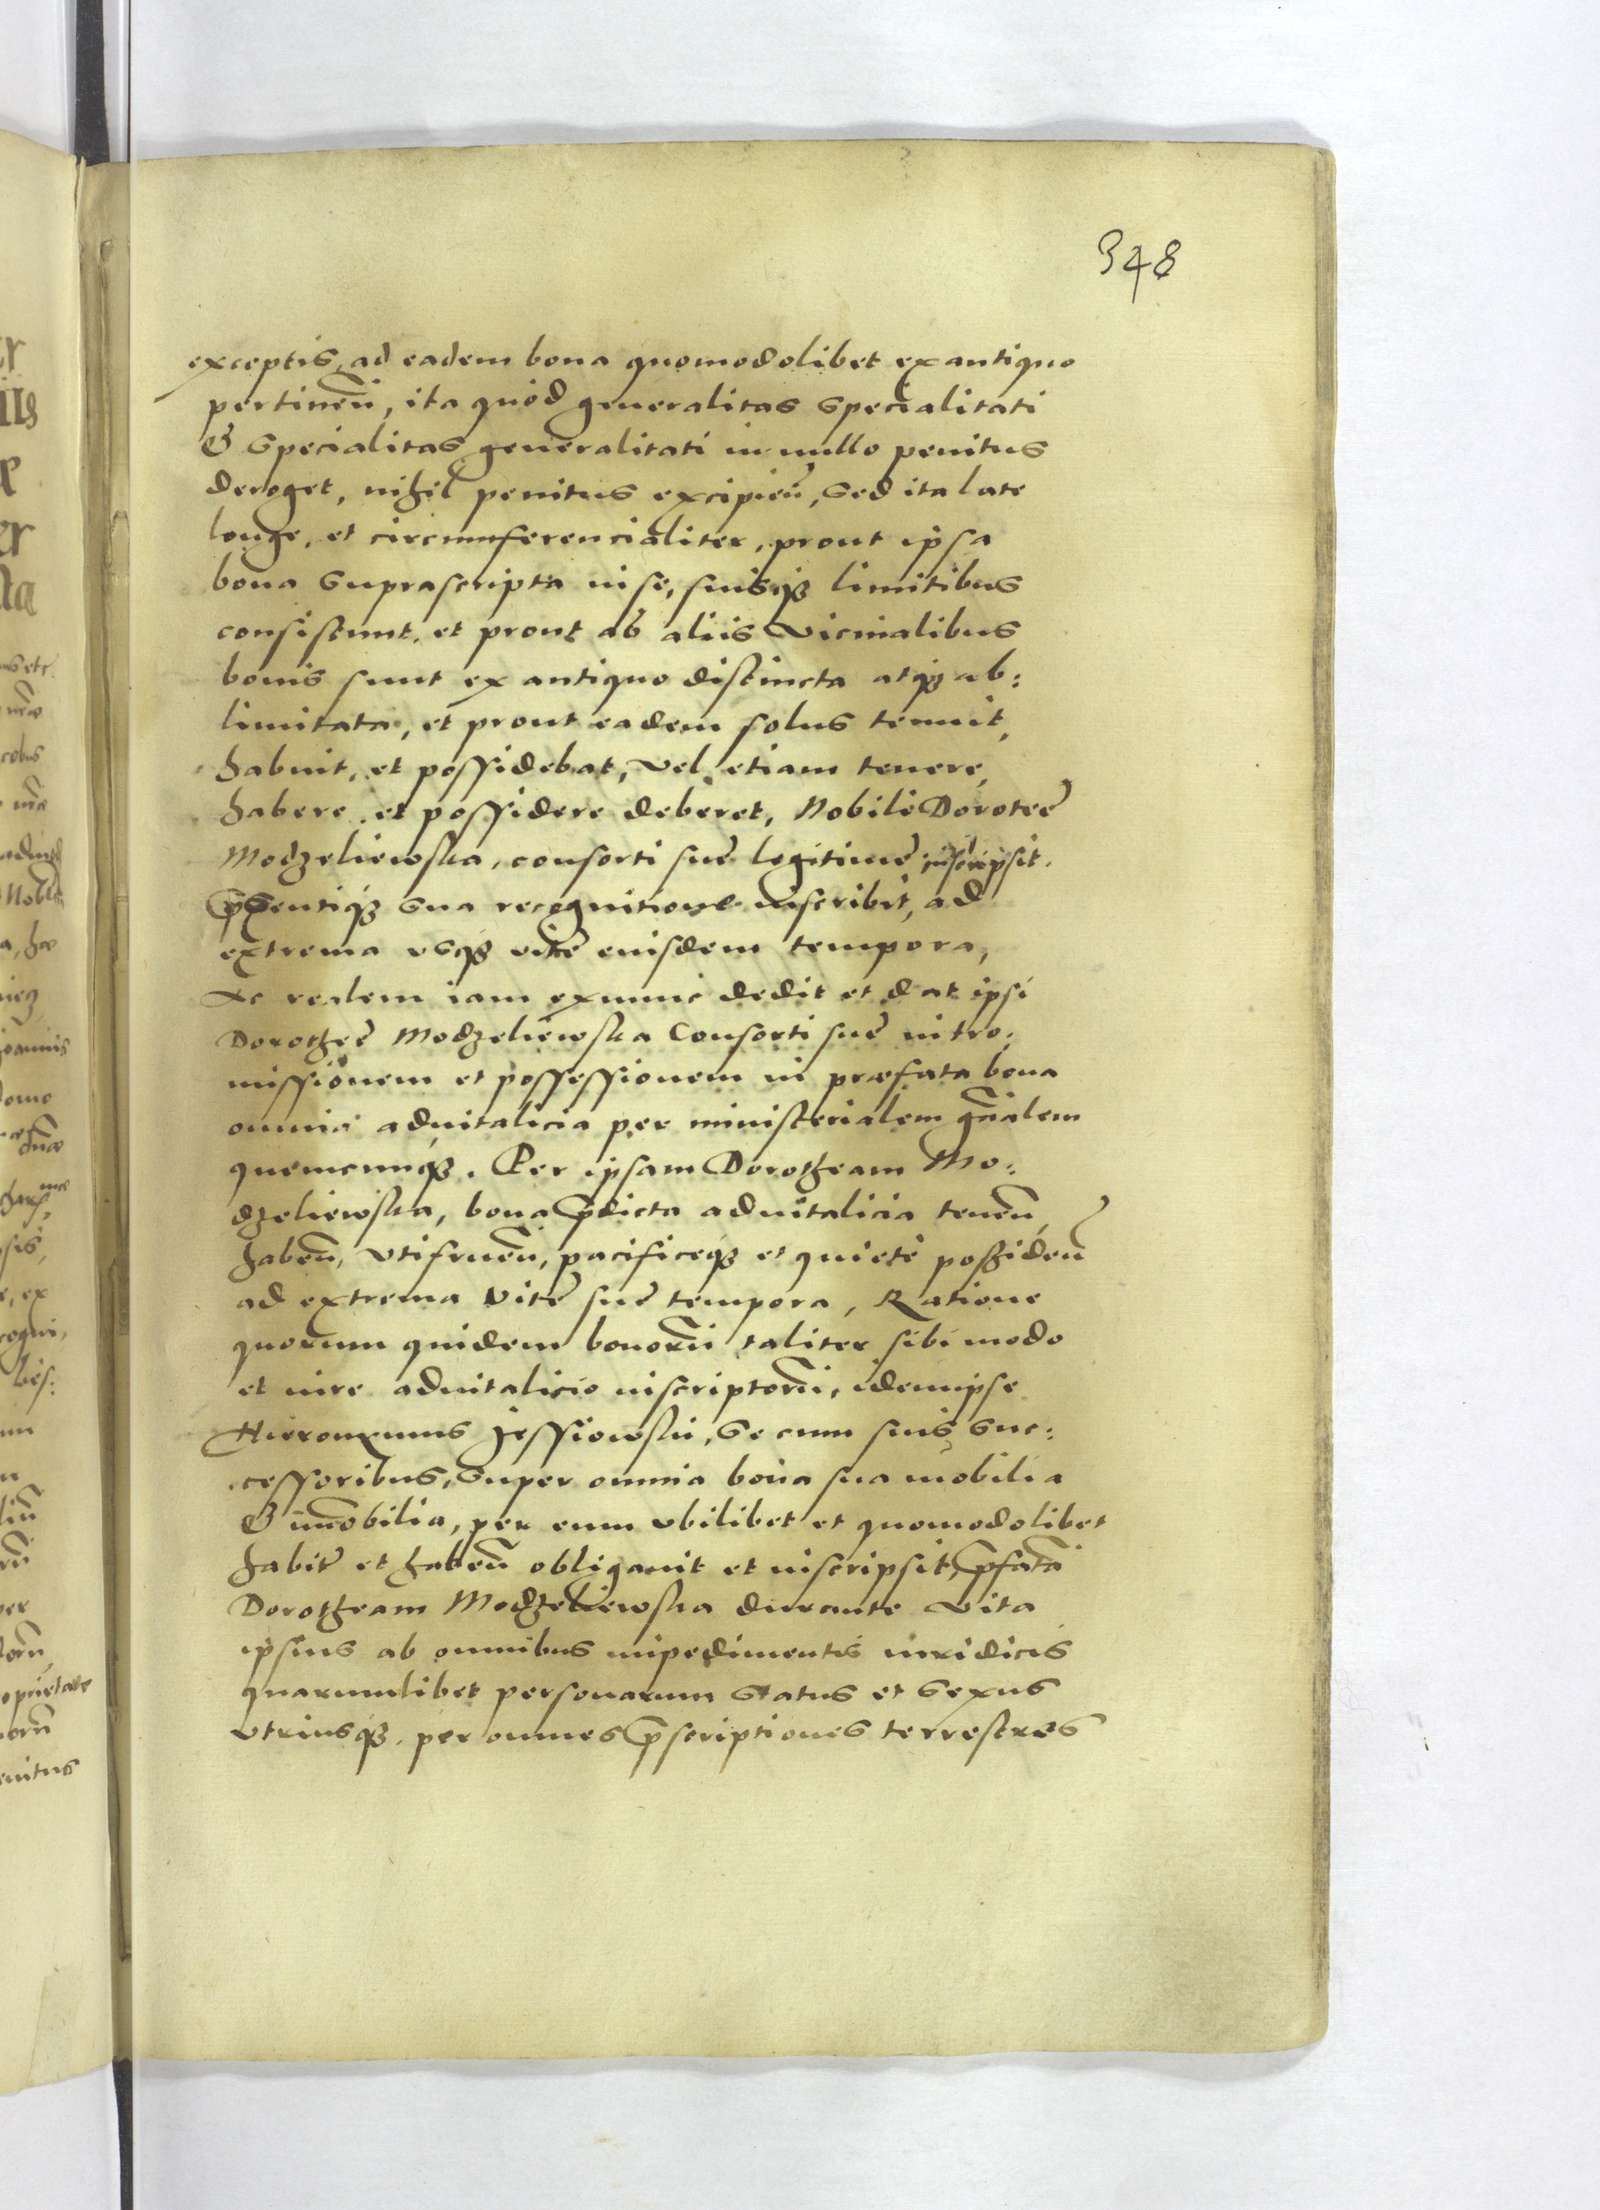 348
exceptis, ad eadem bona quomodolibet ex antiquo
pertineñ, ita quod generalitas specialitati
& specialitas generalitati in nullo penitus
deroget, nihil penitus excipieñ, sed ita late
longe, et circumferencialiter, prout ipsa
bona suprascripta in se, suisqꝫ limitibus
consistunt, et prout ab aliis vicinalibus
bonis sunt ex antiquo distincta atqꝫ ab:
limitata, et prout eadem solus tenuit,
habuit, et possidebat, vel etiam tenere,
habere, et possidere deberet, Nobili Dorotee
Modzeliewska, consorti sue legitime inscripsit.
p̃sentiqꝫ sua recognitione inscribit, ad
extrema vsqꝫ vite eiusdem tempora,
Ac realem iam exnunc dedit et dat ipsi
Dorothee Modzeliewska Consorti sue intro:
missionem et possessionem in præfata bona
omnia aduitalicia per ministerialem gñalem
quemcunqꝫ. Per ipsam Dorotheam Mo:
dzeliewska, bona p̃dicta aduitalicia teneñ,
habeñ, vtifrueñ, pacificeqꝫ et quiete possideñ
ad extrema vite sue tempora, Ratione
quorum quidem bonorũ taliter sibi modo
et iure aduitalicio inscriptorũ, idem ipse
Hieronymus Jessiewski, se cum suis suc:
cessoribus, super omnia bona sua mobilia
& im̃obilia, per eum vbilibet et quomodolibet
habit̃ et habeñ obligauit et inscripsit, p̃fatã
Dorotheam Modzeliewska durante vita
ipsius ab omnibus impedimentis iuridicis
quarumlibet personarum status et sexus
vtriusqꝫ. per omnes p̃scriptiones terrestres